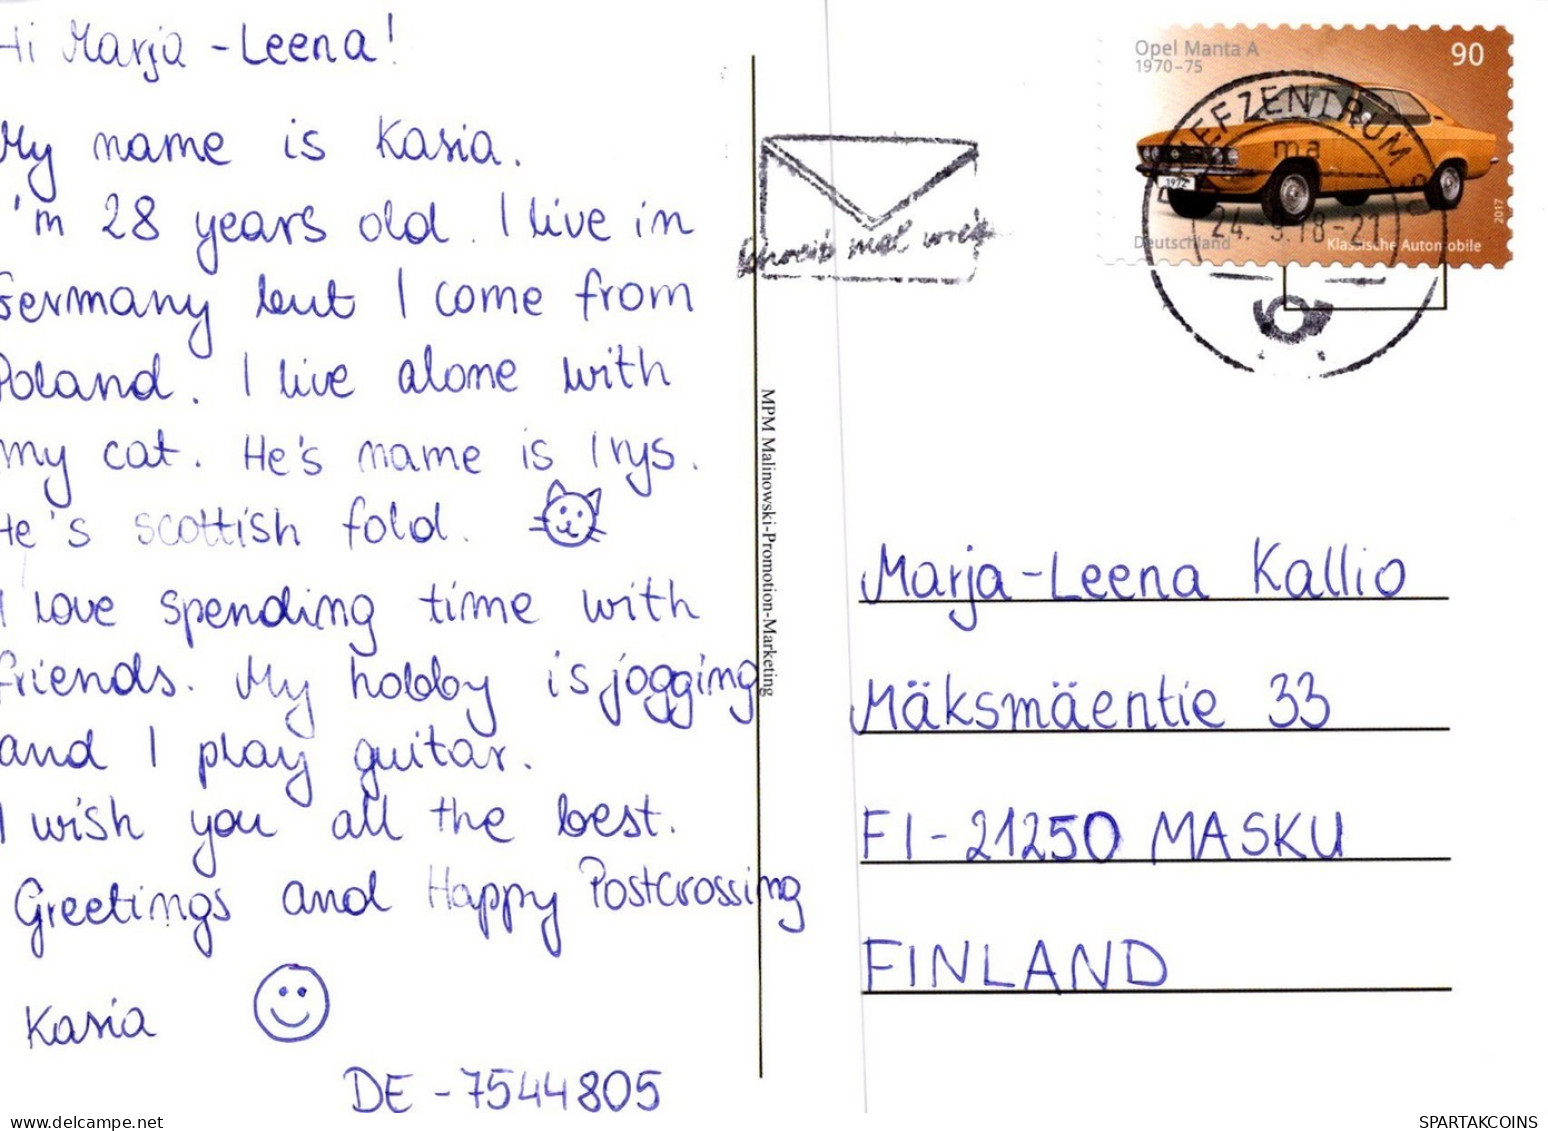 Hi Marja-Leena!
My name is Kasia.
I'm 28 years old. I live in
Germany but I come from
Poland. I live alone with
my cat. He's name is Irys.
He's scottish fold.
I love spending time with
friends. My hobby is jogging
and I play guitar.
I wish you all the best.
Greetings and Happy Postcrossing
Kasia
DE-7544805
MPM Malinowski-Promotion-Marketing
Schreib mal wieder
Opel Manta A
1970-75
90
1972
2017
Deutschland
Klassische Automobile
BRIEFZENTRUM
ma
24. 9.18-21
Marja-Leena Kallio
Mäksmäentie 33
FI-21250 MASKU
FINLAND
www.delcampe.net
SPARTAKCOINS